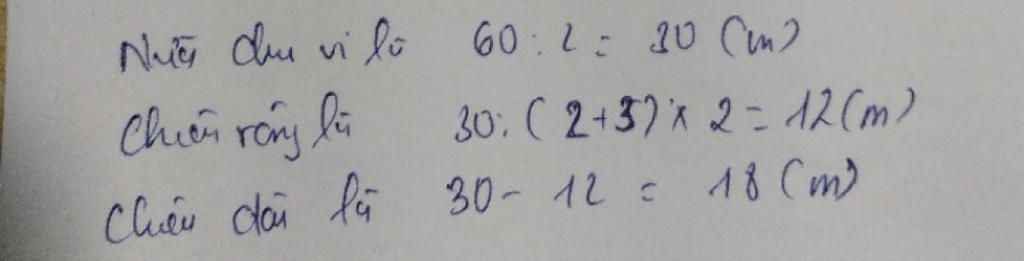 Nửa chu vi là 60 : 2 = 30 (m)
Chiều rộng là 30 : ( 2 + 3 ) x 2 = 12 (m)
Chiều dài là 30 - 12 = 18 (m)